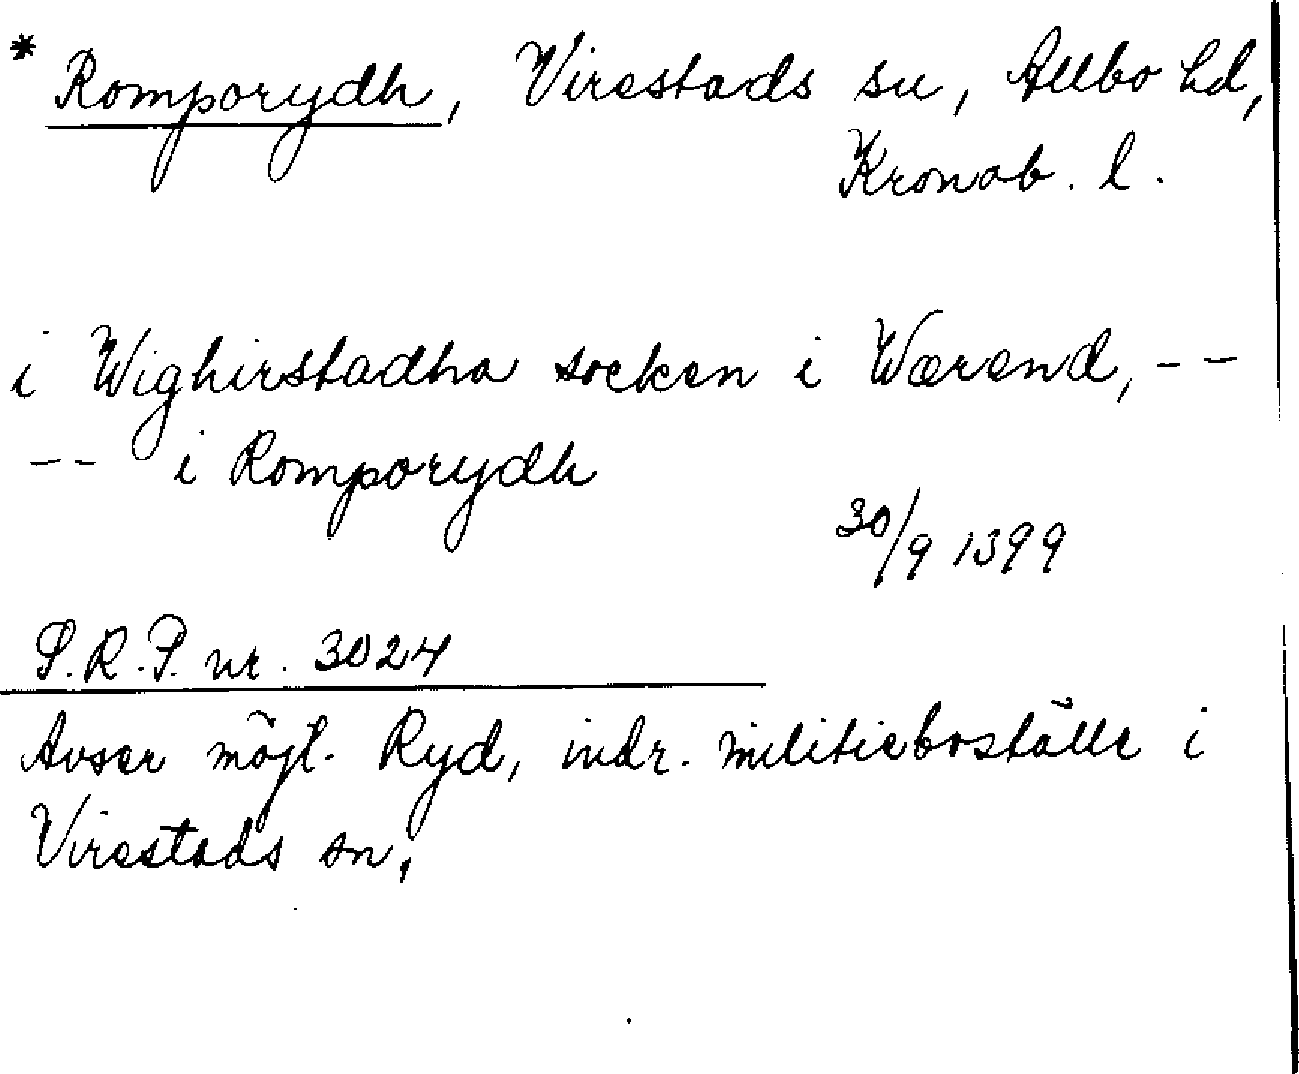 * Romporydh, Virestads sn, Allbo hd,
Kronob. l.
i Wighirstadha socken i Wærend, --
-- i Romporydh
30/9 1399
S.R.P. nr. 3024
Avser möjl. Ryd, indr. militieboställe i
Virestads sn.